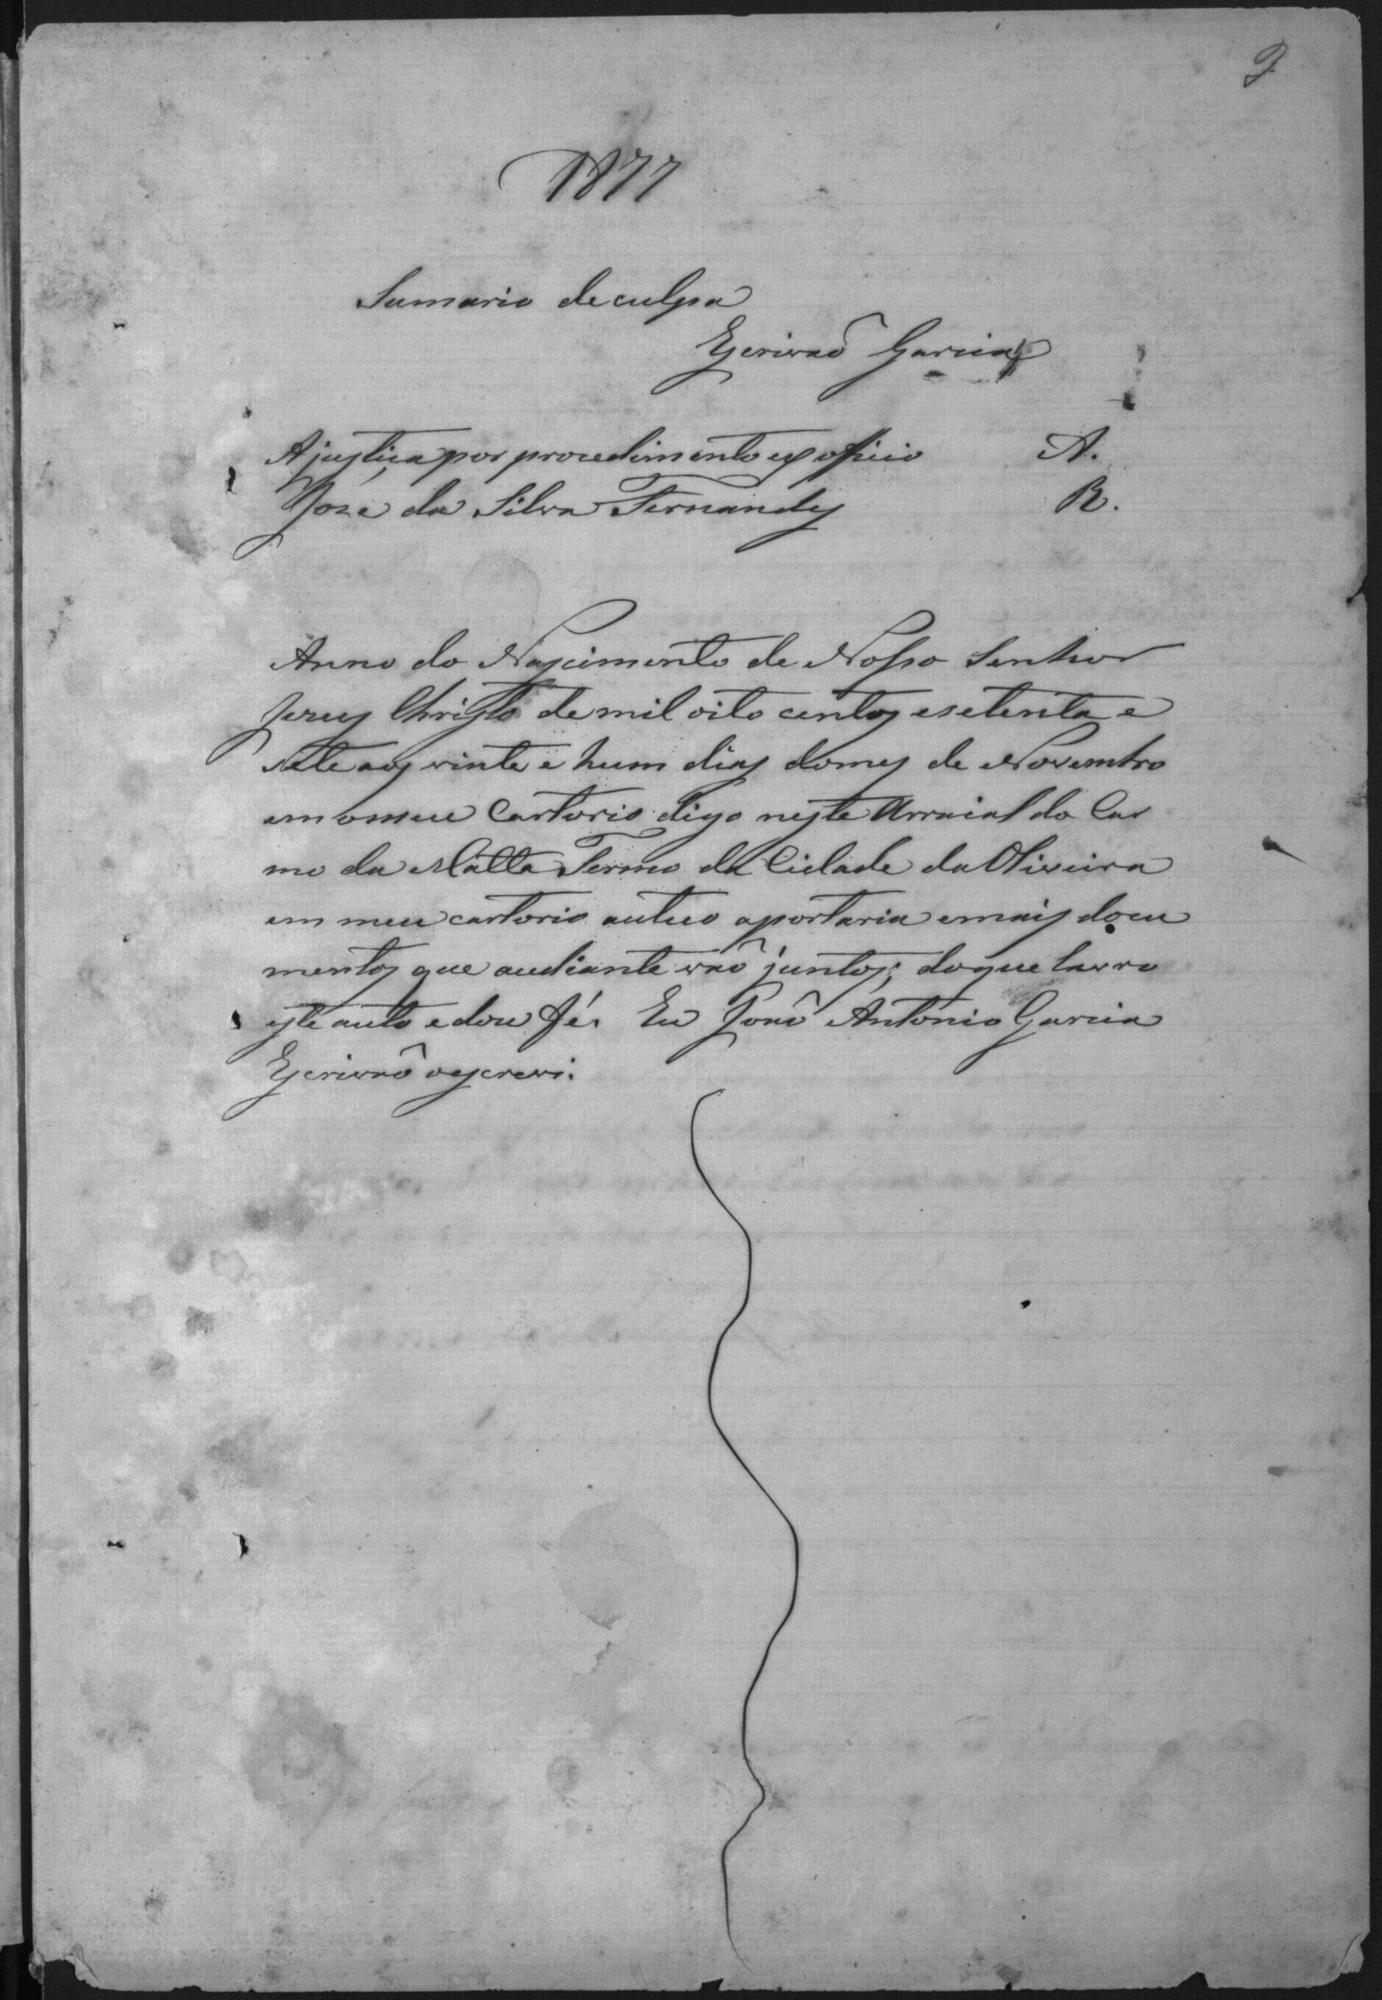 2
1877
Sumario de culpa
Escrivaõ Garcia
A justiça por procedimento ex officio A.
Joze da Silva Fernandes R.
Anno do Nascimento de Nosso Senhor
Jezus Christo de mil oito centos e setenta e
sete aos vinte e hum dias do mes de Novembro
em o meu Cartorio digo neste Arraial do Car
mo da Matta Termo da Cidade da Oliveira
em meu cartorio autuo a portaria e mais docu
mentos que audiante vaõ juntos; do que lavro
este auto e dou fé. Eu Joaõ Antonio Garcia
Escrivaõ o escrevi.